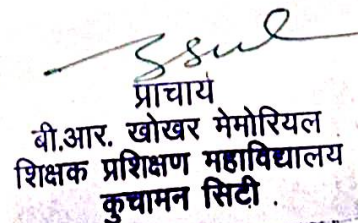 प्राचार्य
बी.आर. खोखर मेमोरियल
शिक्षक प्रशिक्षण महाविद्यालय
कुचामन सिटी .